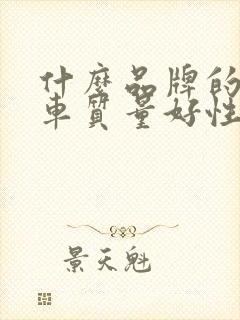 什麽品牌的
車質量好性
景天魁